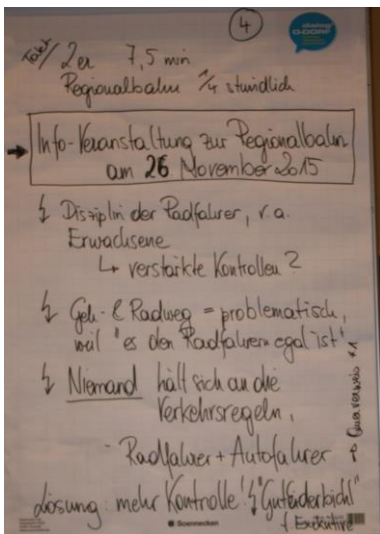 4
dialog
Takt / 2er 7,5 min
Regionalbahn 1/4 stündlich
→ Info-Veranstaltung zur Regionalbahn
am 26 November 2015
Disziplin der Radfahrer, v.a.
Erwachsene
↳ verstärkte Kontrollen?
Geh- & Radweg = problematisch,
weil "es den Radfahrern egal ist"
Niemand hält sich an die
Verkehrsregeln,
- Radfahrer + Autofahrer
→ Querverweis *1
Lösung: mehr Kontrolle!
f. Exekutive
Soennecken